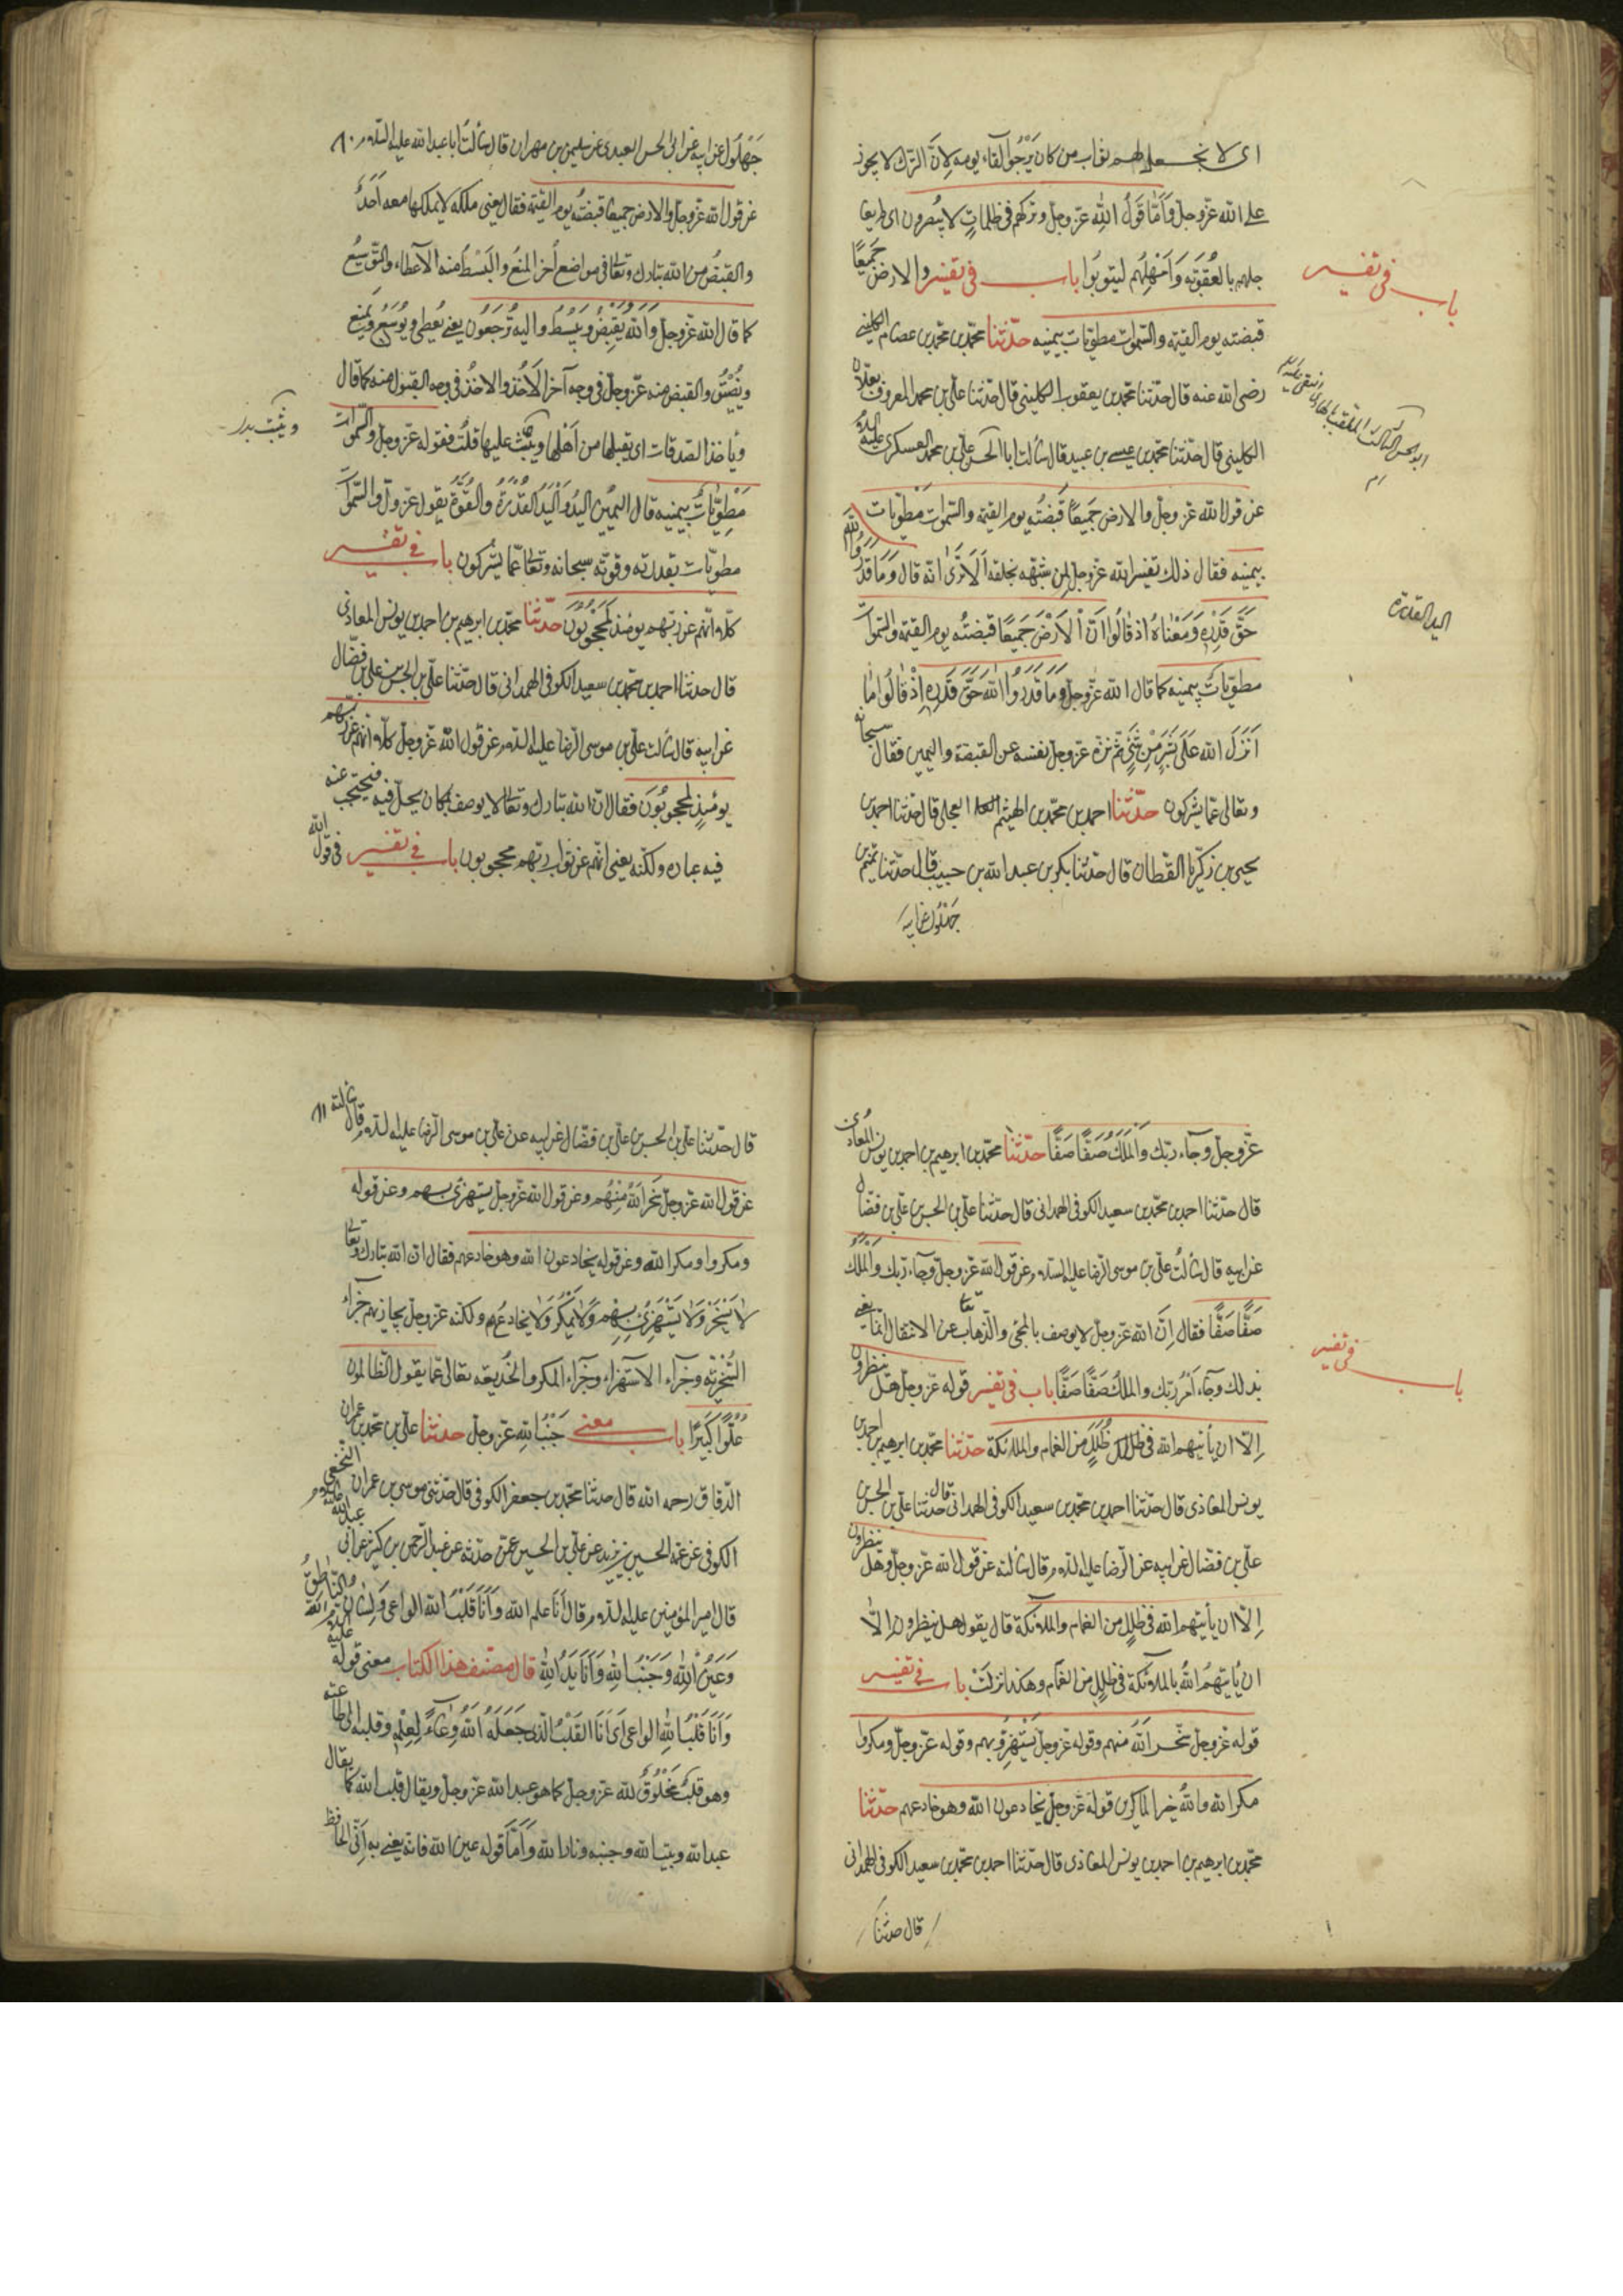 اى لا نجعل لهم ثواب من كان يَرْجُوا لقاء يومه لاِنَّ الترك لا يجوز
على الله عزّوجلّ وَاَمَّا قَولُ اللهِ عزّوجلّ وتركهم فى ظلماتٍ لا يُبْصرون اى لم يعا
جلهم بالعُقُوبَة وَاَمْهَلَهُم ليتوبُوا باب فى تفسير والارض جَميعًا
قبضته يوم القيمة والسّموات مطويّات بيمينه حدّثنا محمّد بن محمّد بن عصام الكلينى
رضى الله عنه قال حدّثنا محمّد بن يعقوب الكلينى قال حدّثنا علىّ بن محمد المعروف بعلان
الكلينى قال حدّثنا محمّد بن عيسى بن عبيد قال سألت ابا الحسن علىّ بن محمّد العسكرى عليه السلام
عن قول الله عزّوجلّ والارض جَميعًا قَبضتُه يوم القيمة والسّموات مطويّات
بيمينه فقال ذلك تفسير الله عزّوجلّ لمن شبّهه بخلقه اَلا تَرٰى انّه قال وَمَا قَدَرُوا اللّٰهَ
حَقَّ قَدْرِه وَمَعْناهُ اذ قالُوا اَنّ الْاَرْضَ جَميعًا قبضتُه يوم القيمة والسّموات
مطويّات بيمينه كما قال الله عزّوجلّ وَمَا قَدَرُوا اللهَ حَقَّ قَدْرِه اِذْ قالُوا ما
اَنْزَلَ الله عَلٰى بَشَرٍ مِنْ شَئٍ ثمّ نزّه عزّوجلّ نفسه عن القبضة واليمين فقال سبحانه
وتعالى عمّا يشركون حدّثنا احمد بن محمّد بن الهيثم العجلى قال حدّثنا احمد بن
يحيى بن زكريّا القطان قال حدّثنا بكر بن عبد الله بن حبيب قال حدّثنا تميم بن
بهلول عن ابيه
باب فى تفسير
ابو الحسن الثالث الملقب بالهادى النقى عليه السلام
اليد القدرة
بَهْلُول عن ابيه عن ابى الحسن العبدى عن سليمن بن مهران قال سألت ابا عبد الله عليه السّلام
عن قول الله عزّوجلّ والارض جميعًا قبضتُه يوم القيمة فقال يعنى ملكه لا يملكها معه اَحَدٌ
والقبضُ من الله تبارك وتعالى فى مواضع اُخَر المنعُ والبَسْطُ منه الاعطاء والتّوسيعُ
كما قال الله عزّوجلّ وَاللهُ يَقْبِضُ وَيَبْسُطُ واليه تُرْجَعُون يعنى يُعْطى ويُوَسّعُ ويَمْنَع
ويُضَيّقُ والقبض منه عزّوجلّ فى وجه آخر الْاَخذُ والاخذُ فى وجه القبول منه كما قال
ويأخذ الصّدقات اى يقبلها من اَهْلها ويثيب عليها قلت فقوله عزّوجلّ والسّموات
مَطْوِيّاتٌ بيمينه قال اليمين اليدُ وَالْيَدُ القُدْرَةُ والقُوّةُ يقول عزّوجلّ والسّموات
مطويّات بقدرته وقوّته سبحانه وتعالى عمّا يشركون باب فى تفسير
كلّا انّهم عن ربّهم يومئذ لَمَحْجُوبُونَ حدّثنا محمّد بن ابرهيم بن احمد بن يونس المعاذى
قال حدثنا احمد بن محمّد بن سعيد الكوفى الهمدانى قال حدّثنا علىّ بن الحسن بن على بن فضّال
عن ابيه قال سألت علىّ بن موسى الرّضا عليه السّلام عن قول الله عزّوجلّ كلّا انّهم عن ربّهم
يومئذٍ لمحجوبُونَ فقال انّ الله تبارك وتعالى لا يوصف بمكان يحلّ فيه فيحتجب عنه
فيه عباده ولكنّه يعنى انّهم عن ثواب ربّهم محجوبون باب فى تفسير قول الله
عزّوجلّ وجآء ربّك وَالْمَلَكُ صَفًّا صَفًّا حدّثنا محمّد بن ابرهيم بن احمد بن يونس المعاذى
قال حدّثنا احمد بن محمّد بن سعيد الكوفى الهمدانى قال حدّثنا علىّ بن الحسن بن علىّ بن فضّال
عن ابيه قال سألتُ علىّ بن موسى الرّضا عليه السّلام عن قول الله عزّوجلّ وجآء ربّك وَالْمَلَكُ
صَفًّا صَفًّا فقال اِنّ الله عزّوجلّ لا يوصف بالمجئ والذّهاب تعالى عن الانتقال انّما يعنى
بذلك وجآء اَمْرُ ربّك والملكُ صَفًّا صَفًّا باب فى تفسير قوله عزّوجلّ هل ينظرون
اِلّا ان يأتيهم الله فى ظللٍ من الغمام والملائكة حدّثنا محمّد بن ابرهيم بن احمد بن
يونس المعاذى قال حدّثنا احمد بن محمّد بن سعيد الكوفى الهمدانى قال حدّثنا علىّ بن الحسن بن
علىّ بن فضّال عن ابيه عن الرّضا عليه السّلام قال سألته عن قول الله عزّوجلّ هل ينظرون
اِلّا ان يأتيهم الله فى ظللٍ من الغمام والملائكة قال يقول هل ينظرون اِلّا
ان يأتيهُم اللهُ بالملائكة فى ظللٍ من الغمام وهكذا نزلَتْ باب فى تفسير
قوله عزّوجلّ سَخِرَ اللهُ منهم وقوله عزّوجلّ يَسْتَهْزِئُ بهم وقوله عزّوجلّ ومكروا
مكر الله واللهُ خير الماكرين قوله عزّوجلّ يخادعون الله وهو خادعهم حدّثنا
محمّد بن ابرهيم بن احمد بن يونس المعاذى قال حدّثنا احمد بن محمّد بن سعيد الكوفى الهمدانى
قال حدثنا
باب فى تفسير
قال حدّثنا علىّ بن الحسن بن علىّ بن فضّال عن ابيه عن علىّ بن موسى الرّضا عليه السّلام قال سألته
عن قول الله عزّوجلّ سَخِرَ اللهُ مِنْهُم وعن قول الله عزّوجلّ يستهزئ بهم وعن قوله
ومكروا ومكر الله وعن قوله يخادعون الله وهو خادعهم فقال انّ الله تبارك وتعالى
لا يَسْخَرُ وَلا يَسْتَهْزِئُ بِهِم وَلا يَمْكُرُ وَلا يخادعُهُم ولكنّه عزّوجلّ يجازيهم جَزآء
السُّخْرِيّة وجزآء الاستهزاء وجزآء المكر والخديعة تعالى عمّا يقول الظّالمون
عُلُوًّا كَبيرًا باب معنى جَنْبِ اللهِ عزّوجلّ حدثنا علىّ بن محمّد بن عمران
الدّقاق رحمه الله قال حدثنا محمّد بن جعفر الكوفى قال حدّثنى موسى بن عمران النّخعى
الكوفى عن عمّه الحسين بن يزيد عن علىّ بن الحسين عمّن حدّثه عن عبد الرّحمن بن كثير عن ابى عبد الله عليه السلام
قال امير المؤمنين عليه السّلام قال اَنا علم الله وَاَنَا قَلْبُ الله الواعى وَلِسانُ اللهِ النّاطقُ
وَعَيْنُ اللهِ وَجَنْبُ اللهِ وَاَنَا يَدُ اللهِ قال مصنّف هذا الكتاب معنى قوله عليه السلام
وَاَنَا قَلْبُ اللهِ الواعى اَى اَنَا القَلْبُ الّذى جَعَلَهُ اللهُ وِعَآءً لِعِلْمِه وقلبه الى طاعته
وهو قلبٌ مَخْلُوقٌ لله عزّوجلّ كما هو عبد الله عزّوجلّ ويقال قلب الله كما يقال
عبد الله وبيت الله وجنّة الله ونار الله وَاَمّا قوله عين الله فانّه يعنى به اَنّى الحافظ